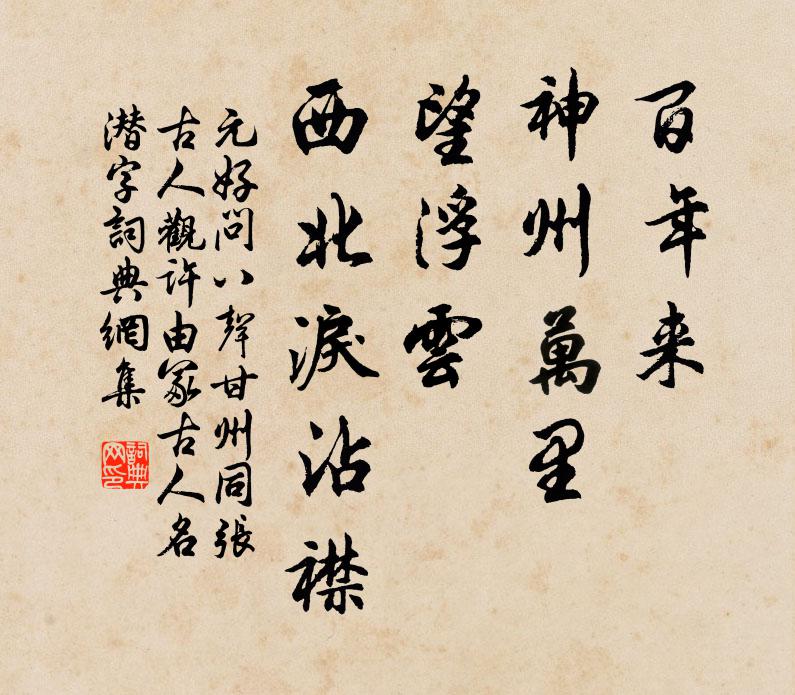 百年来
神州萬里
望浮雲
西北淚沾襟
元好问八聲甘州同張
古人觀许由冢古人名
潜字詞典網集
詞典
网印